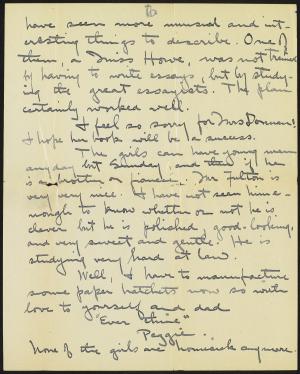 to
have seen more unusual and int-
eresting things to describe. One of
them, a Miss Howe, was not trained
by having to write essays, but by study-
ing the great essayists. The plan
certainly worked well.
I feel so sorry for Miss
I hope her book will be a success.
The girls can have young men
anyday but Sunday, and then if he
is a brother or fiancé. Mr Fulton is
very very nice. I have not seen him e-
nough to know whether or not he is
clever but he is polished, good-looking,
and very sweet and gentle. He is
studying very hard at law.
Well, I have to manufacture
some paper hatchets now so with
love to yourself and dad
"Ever thine"
Peggie.
None of the girls are homesick anymore.